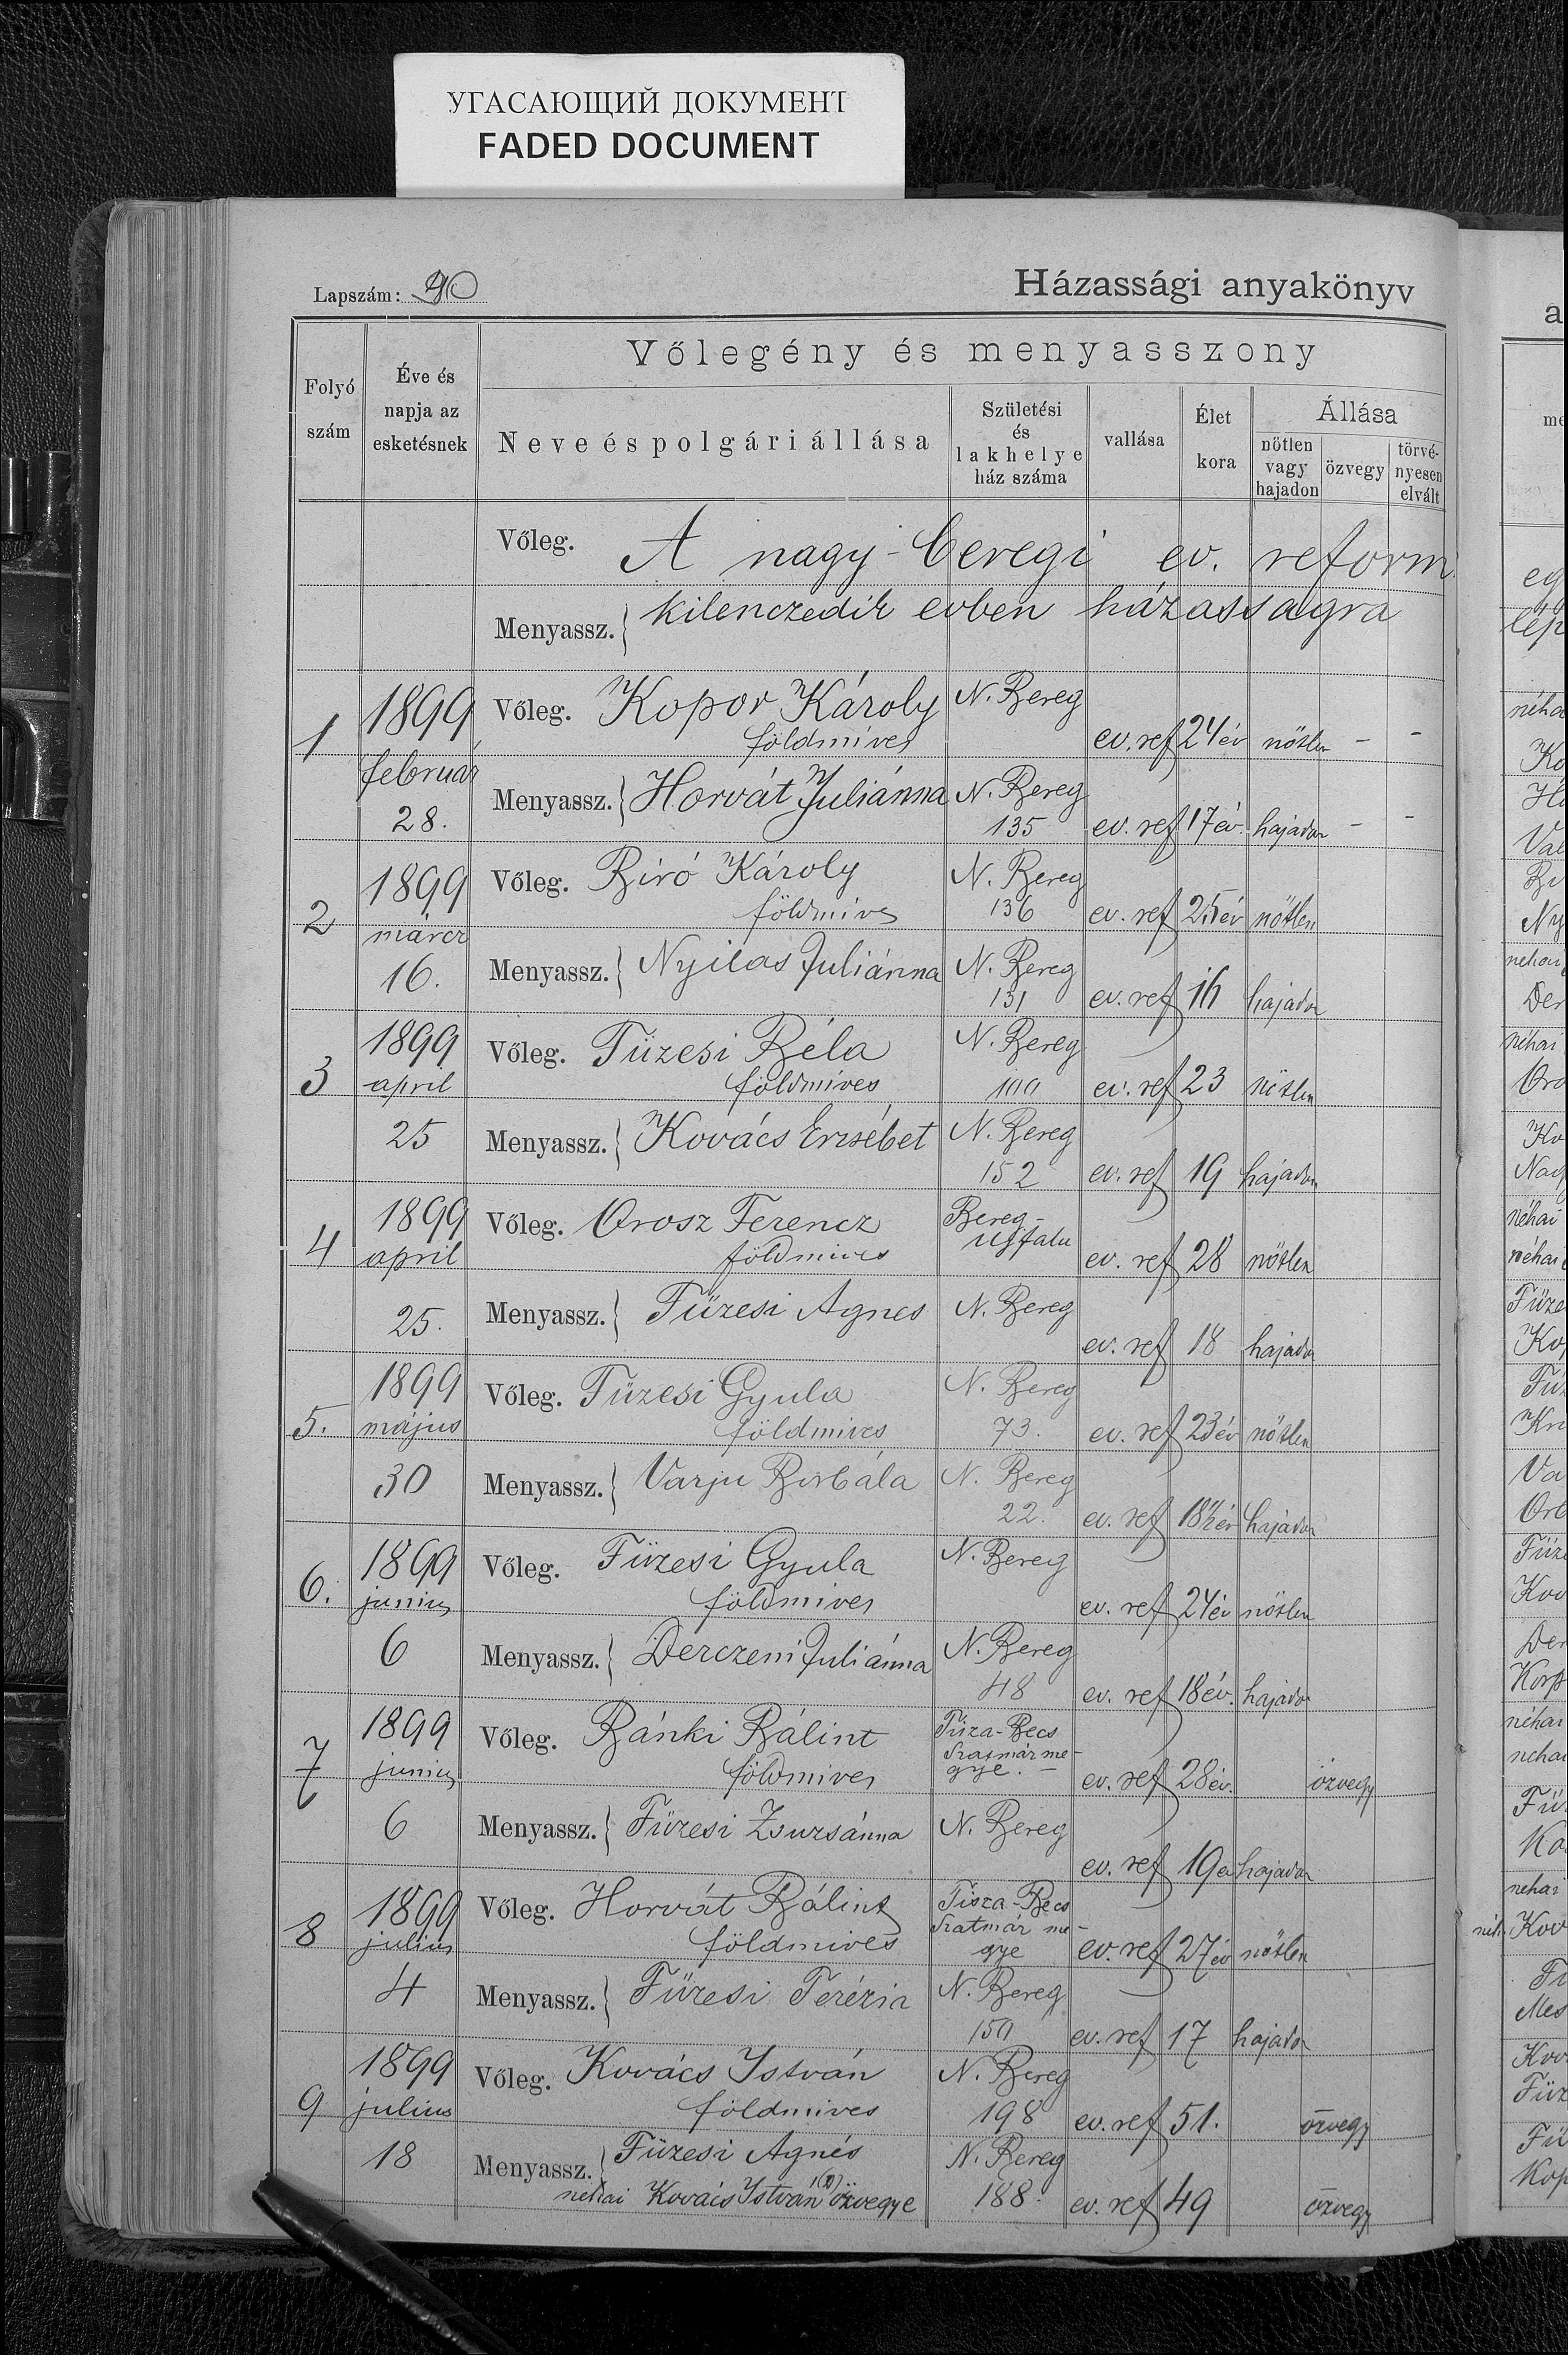 УГАСАЮЩИЙ ДОКУМЕНТ
FADED DOCUMENT
Lapszám: 90
Házassági anyakönyv
Folyó szám
Éve és napja az esketésnek
Vőlegény és menyasszony
Neve és polgári állása
Születési és lakhelye ház száma
vallása
Élet kora
Állása
nötlen vagy hajadon
özvegy
törvényesen elvált
Vőleg. A nagy-beregi ev. reform
Menyassz. kilenczedik evben házasságra
1 1899 Vőleg. Kopor Károly N. Bereg
földmives ev. ref 24 év nötlen - -
február
28. Menyassz. Horvát Juliánna N. Bereg
135 ev. ref 17 év. hajadon - -
2 1899 Vőleg. Biró Károly N. Bereg
márcz földmives 136 ev. ref 25 év nötlen
16. Menyassz. Nyilas Juliánna N. Bereg
131 ev. ref 16 hajadon
3 1899 Vőleg. Füzesi Béla N. Bereg
april földmives ev. ref 23 nötlen
25 Menyassz. Kovács Erzsébet N. Bereg
152 ev. ref 19 hajadon
4 1899 Vőleg. Orosz Ferencz Bereg-
ujfalu
april földmives ev. ref 28 nötlen
25. Menyassz. Füzesi Agnes N. Bereg
ev. ref 18 hajadon
5. 1899 Vőleg. Füzesi Gyula N. Bereg
május földmives 73. ev. ref 23 év nötlen
30 Menyassz. Varju Borbála N. Bereg
22. ev. ref 18½ év hajadon
6. 1899 Vőleg. Füzesi Gyula N. Bereg
junius földmives ev. ref 24 év nötlen
6 Menyassz. Derczeni Juliánna N. Bereg
48 ev. ref 18 év. hajadon
7 1899 Vőleg. Bánki Bálint Tisza-Becs
Szatmár me-
junius földmives gye. - ev. ref 28 év. özvegy
6 Menyassz. Füzesi Zsuzsánna N. Bereg
ev. ref 19 é hajadon
8 1899 Vőleg. Horvát Bálint Tisza-Becs
Szatmár me-
julius földmives gye ev. ref 27 év nötlen
4 Menyassz. Füzesi Terézia N. Bereg
ev. ref 17 hajadon
9 1899 Vőleg. Kovács István N. Bereg
julius földmives 198 ev. ref 51. özvegy
18 Menyassz. Füzesi Agnés N. Bereg
nehai Kovács István özvegye 188. ev. ref 49 özvegy